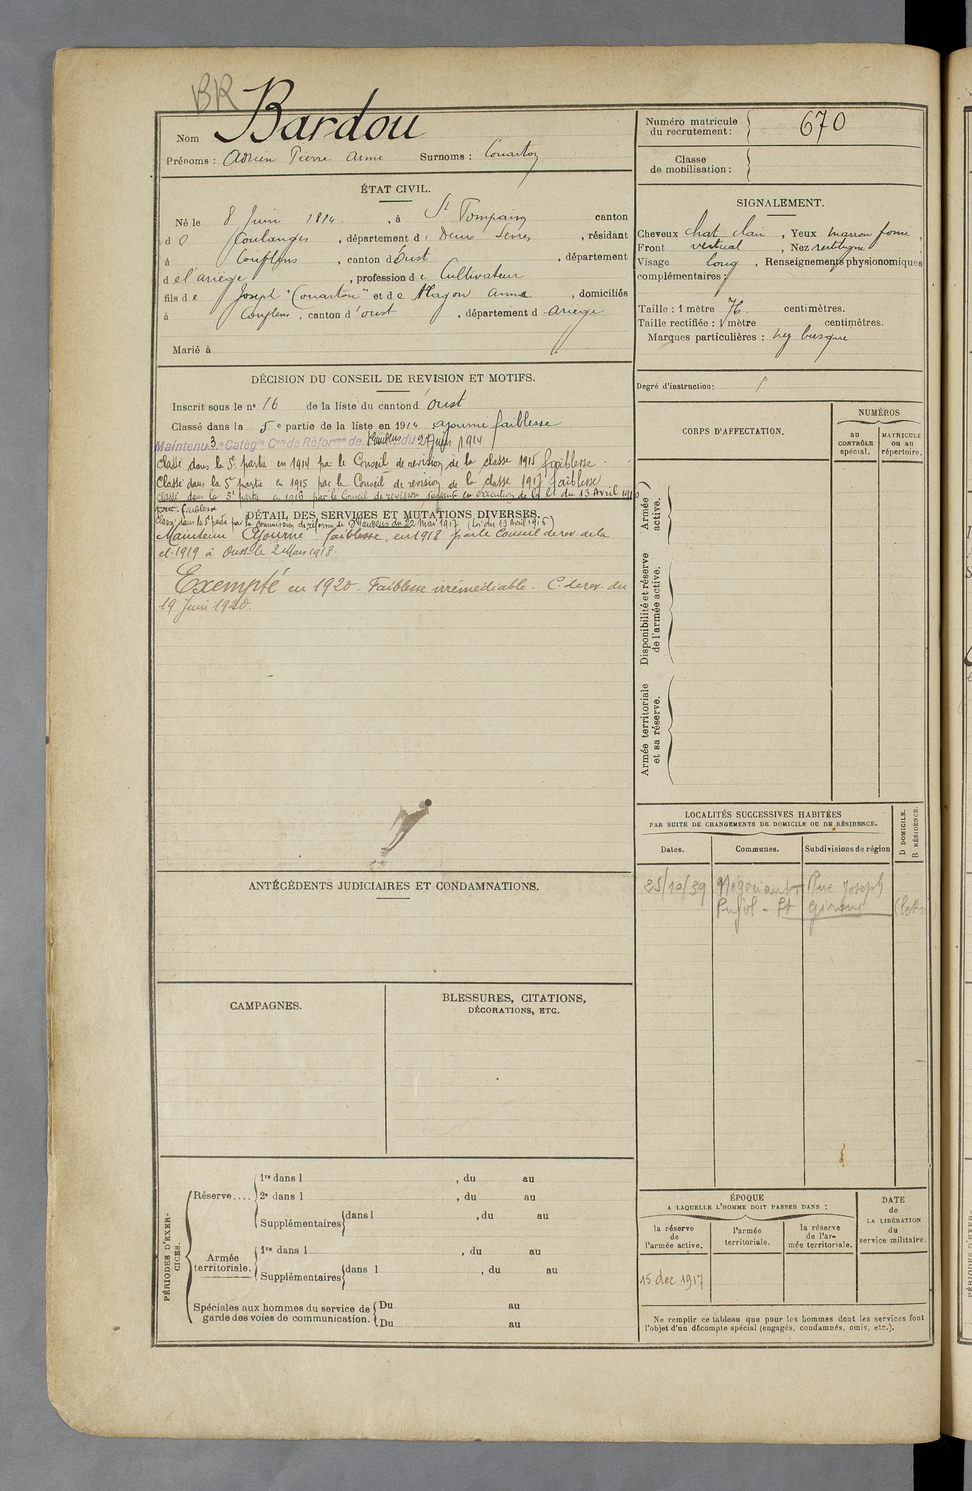 BR
Nom Bardou
Prénoms : Adrien Pierre Aimé Surnoms : Couartou
Numéro matricule du recrutement : 670
Classe de mobilisation :
ÉTAT CIVIL.
Né le 8 Juin 1894, à St Pompain canton
d e Coulonges, département d es Deux Sevres, résidant
à Couflens, canton d'Oust, département
d e l'ariège, profession d e Cultivateur
fils d e Joseph "Couartou" et d e Magon Anna, domiciliés
à Couflens, canton d'oust, département d Ariège
Marié à
SIGNALEMENT.
Cheveux chat clair, Yeux marron foncé,
Front vertical, Nez rectiligne
Visage long, Renseignements physionomiques
complémentaires :
Taille : 1 mètre 76 centimètres.
Taille rectifiée : 1 mètre centimètres.
Marques particulières : nez busqué
Degré d'instruction :
DÉCISION DU CONSEIL DE REVISION ET MOTIFS.
Inscrit sous le n° 16 de la liste du canton d'oust
Classé dans la 5e partie de la liste en 1914 ajourné faiblesse
Maintenu 3e Catégie Con de Réforme de du 1914
Classé dans la 5e partie en 1914 par le Conseil de revision de la classe 1915 faiblesse.
Classé dans la 5e partie en 1915 par le Conseil de revision de la classe 1917 faiblesse
Classé dans la 5e partie en 1916 par le Conseil de revision en execution de la loi du 13 Avril 1916
pour faiblesse
DÉTAIL DES SERVICES ET MUTATIONS DIVERSES.
Classé dans la 5e partie par la commission de reforme de du 22 mai 1917 (Loi du 13 Avril 1916)
Maintenu Ajourné faiblesse, en 1918 par le Conseil de rev. de la
cl. 1919 à Oust le 2 Mars 1918.
Exempté en 1920. Faiblesse irrémédiable. C. de rev. du
19 Juin 1920.
CORPS D'AFFECTATION.
NUMÉROS
au CONTRÔLE spécial.
MATRICULE ou au répertoire.
Armée active.
Disponibilité et réserve de l'armée active.
Armée territoriale et sa réserve.
LOCALITÉS SUCCESSIVES HABITÉES
PAR SUITE DE CHANGEMENTS DE DOMICILE OU DE RÉSIDENCE.
Dates.
Communes.
Subdivisions de région
D DOMICILE.
R RÉSIDENCE.
25/10/39 Négociant Rue Joseph
Pujol - St Girons
ANTÉCÉDENTS JUDICIAIRES ET CONDAMNATIONS.
CAMPAGNES.
BLESSURES, CITATIONS,
DÉCORATIONS, ETC.
PÉRIODES D'EXERCICES.
Réserve....
1re dans l , du au
2e dans l , du au
Supplémentaires dans l , du au
Armée territoriale.
1re dans l , du au
Supplémentaires dans l , du au
Spéciales aux hommes du service de garde des voies de communication.
Du au
Du au
ÉPOQUE
A LAQUELLE L'HOMME DOIT PASSER DANS :
la réserve de l'armée active.
l'armée territoriale.
la réserve de l'armée territoriale.
DATE de LA LIBÉRATION du service militaire.
15 dec 1917
Ne remplir ce tableau que pour les hommes dont les services font
l'objet d'un décompte spécial (engagés, condamnés, omis, etc.).